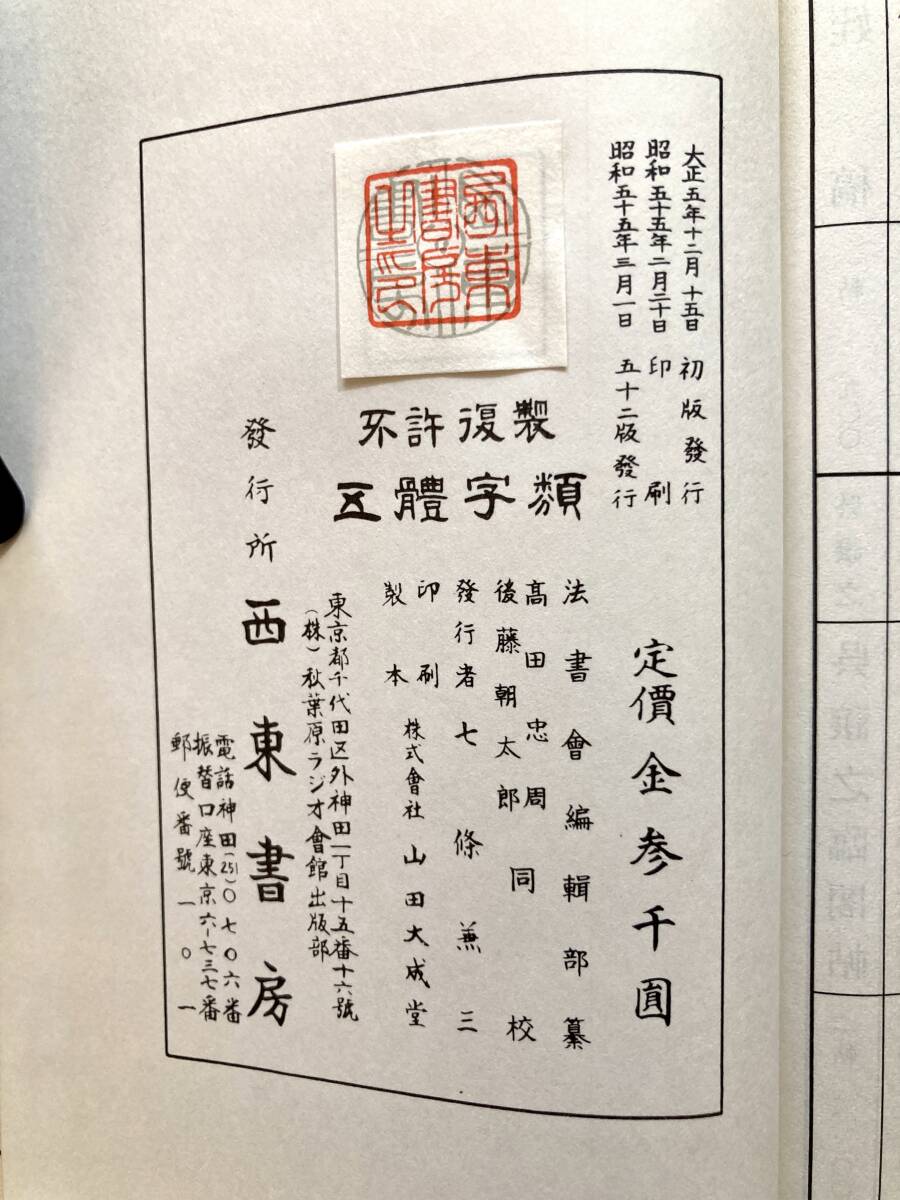 大正五年十二月十五日 初版發行
昭和五十五年二月二十日 印刷
昭和五十五年三月一日 五十二版發行
西東書房之印
不許復製
五體字類
定價金参千圓
法書會編輯部纂
高田忠周
後藤朝太郎 同校
發行者 七條兼三
印刷
製本 株式會社 山田大成堂
東京都千代田区外神田一丁目十五番十六號
(株)秋葉原ラジオ會館出版部
發行所 西東書房
電話神田(251)〇七〇六番
振替口座東京六ー七三七番
郵便番號一〇一